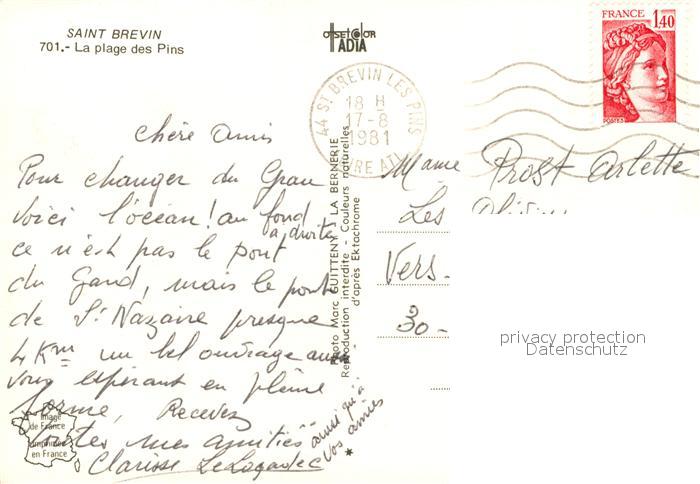 SAINT BREVIN
701.- La plage des Pins
OFFSETCOLOR
ADIA
FRANCE
1,40
POSTES
44 ST BREVIN LES PINS
18 H
17-8
1981
LOIRE ATL.
Chère Amis
Pour changer du Grau
voici l'océan! au fond
à droite,
ce n'est pas le pont
du Gard, mais le pont
de St Nazaire presque
4 Kms un bel ouvrage
vous espérant en pleine
forme, Recevez
toutes mes amitiés
ainsi qu'à
vos amies
Clarisse Le
Image
de France
imprimée
en France
Photo Marc GUITTENY - LA BERNERIE
Reproduction interdite - Couleurs naturelles
d'après Ektachrome
Mame Prost Arlette
Les
Vers-
30-
privacy protection
Datenschutz